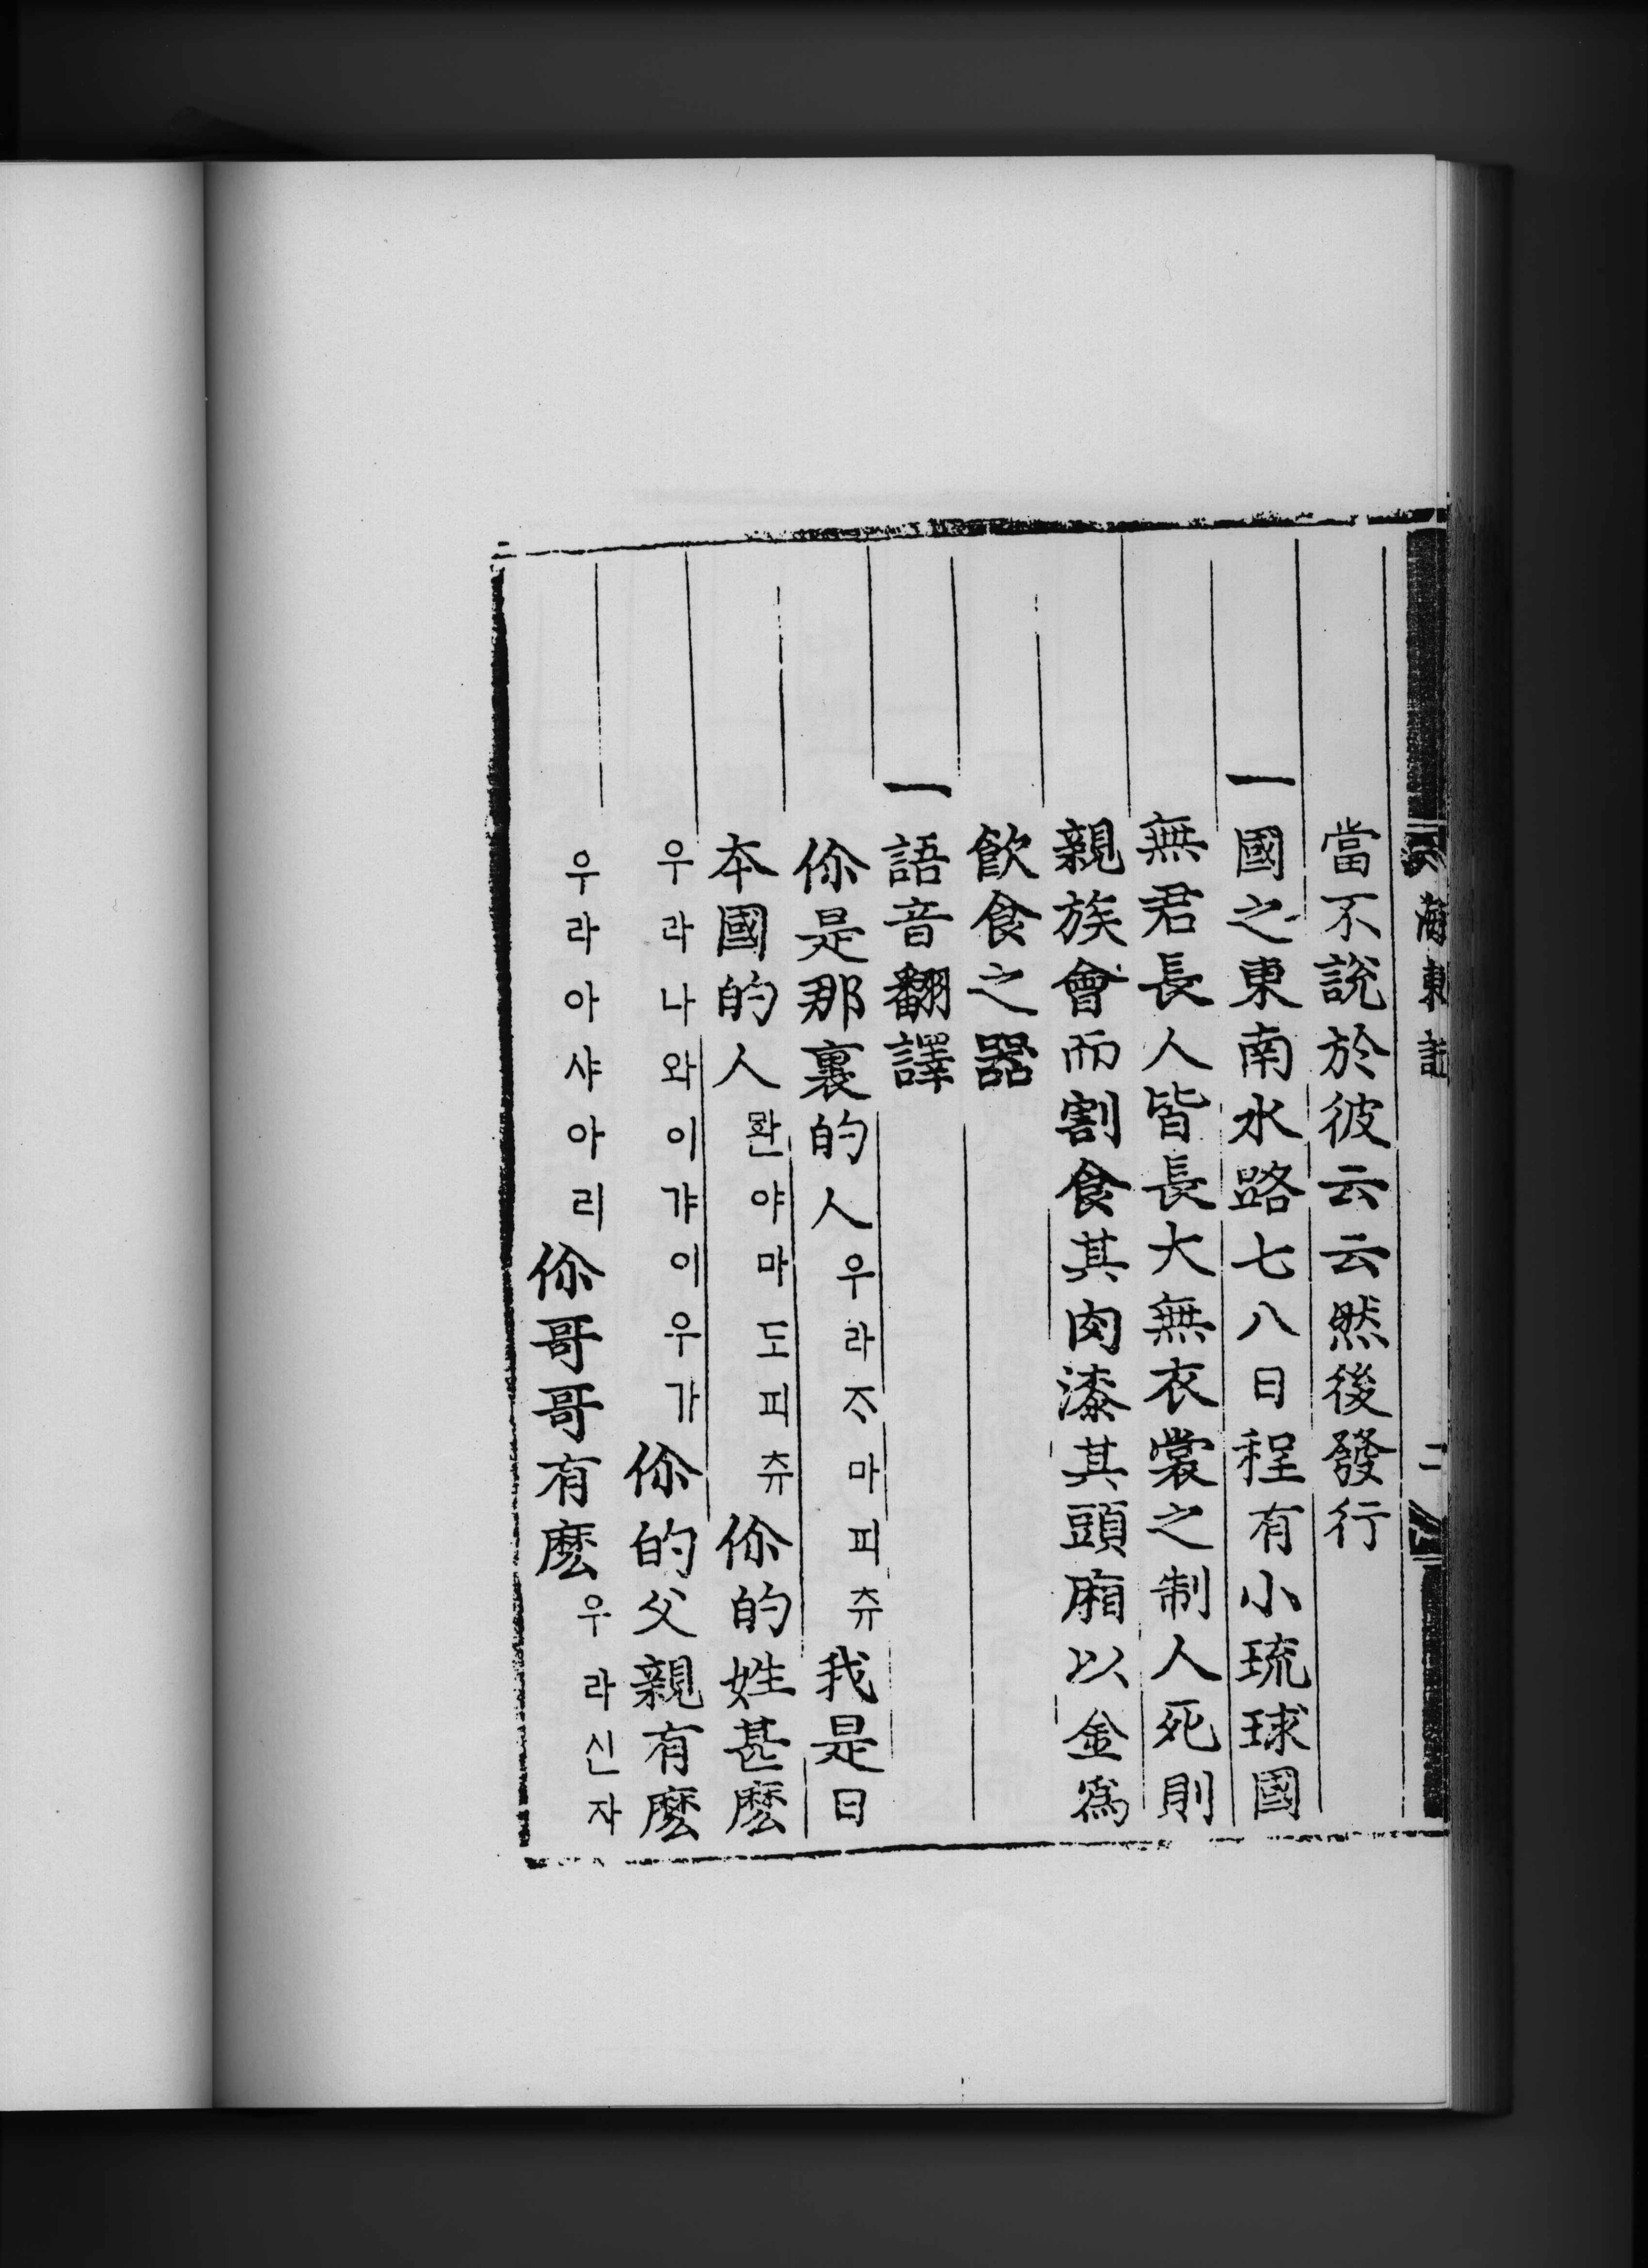 海東
二
當不說於彼云云然後發行
一國之東南水路七八日程有小琉球國
無君長人皆長大無衣裳之制人死則
親族會而割食其肉漆其頭廂以金爲
飮食之器
一語音翻譯
你是那裏的人우라ᄌᆞ마피츄我是日
本國的人뫈야마도피츄你的姓甚麽
우라나와이갸이우가你的父親有麽
우라아샤아리你哥哥有麽우라신자